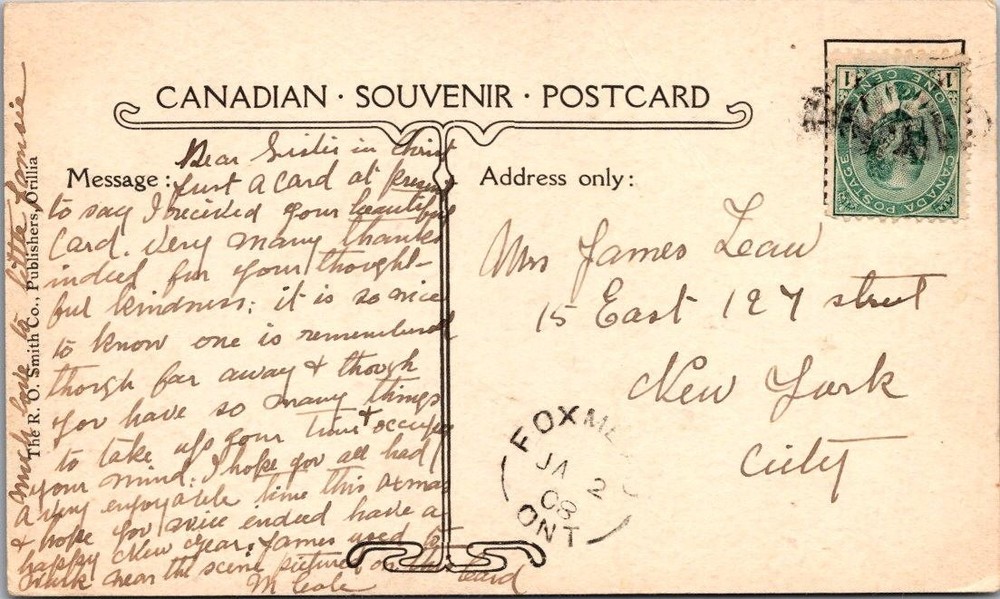 CANADIAN · SOUVENIR · POSTCARD
Message:
Dear Sister in Christ
Just a card at present
to say I received your beautiful
Card. Very many thanks
indeed for your thought-
ful kindness; it is so nice
to know one is remembered
though far away & though
you have so many things
to take up your time & occupy
your mind. I hope you all had
a very enjoyable time this Xmas
& hope you will indeed have a
happy New Year. James used to
work near the scene pictured on this Card
M
Much love to little Jamsie
The R. O. Smith Co., Publishers, Orillia
Address only:
Mrs James Leau
15 East 127 street
New York
City
CANADA POSTAGE
ONE CENT
1 1
FOXME
JA 2
08
ONT